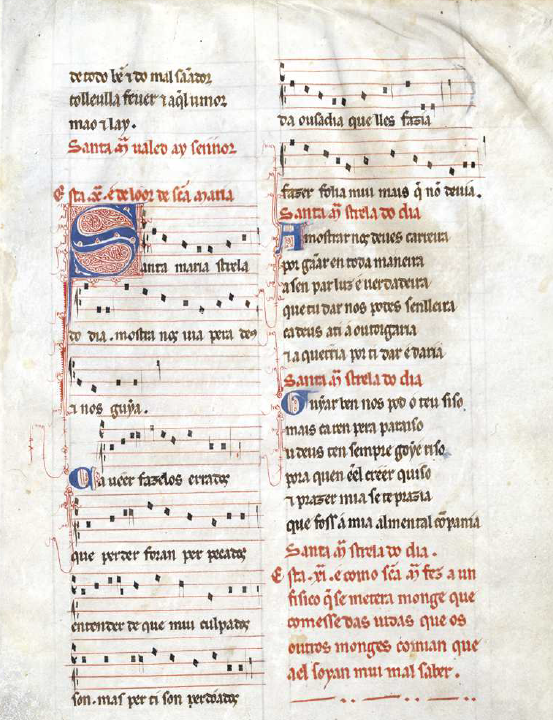 de todo bẽ ⁊ do mal sãador
tolleulla feuer ⁊ aq̃l umor
mao ⁊ lay.
Santa M̃ ualed ay sennor
Esta .x̃. é de loor de scã Maria
Santa maria strela
do dia. mostra nos uia pera deus
⁊ nos guỹa.
Ca ueer fazelos errados
que perder foran per pecados
entender de que mui culpados
son. mas per ti son perdõados
da ousadia que lles fazia
fazer folia mui mais q̃ nõ deuia.
Santa M̃ strela do dia
Amostrar nos deues carreira
por gãar en toda maneira
a sen par luz e uerdadeira
que tu dar nos podes senlleira
ca deus a ti a outorgaria
⁊ a querria por ti dar e daria
Santa M̃ strela do dia
Guỹar ben nos pod o teu siso
mais ca ren pera paraiso
u deus ten sempre goyˀe riso
pora quen eel creer quiso
⁊ prazer mia se te prazia
que foss a mia alma en tal cõpania
Santa M̃ strela do dia.
Esta .xi. e como scã M̃ fez a un
fisico q̃ se metera monge que
comesse das uidas que os
outros monges comian que
a el soyan mui mal saber.